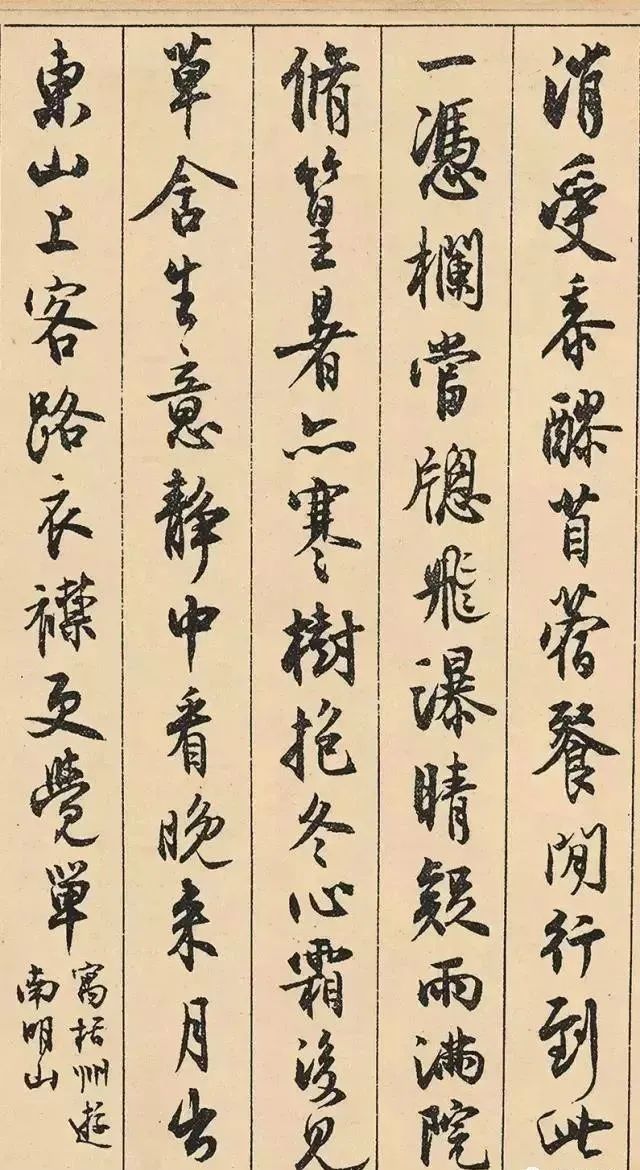 消受泰醪苜蓿餐閒行到此
一憑欄當牕飛瀑晴疑雨滿院
脩篁暑亦寒樹抱冬心霜後見
草含生意静中看晚来月出
東山上客路衣襟更覺單
寓括州遊
南明山